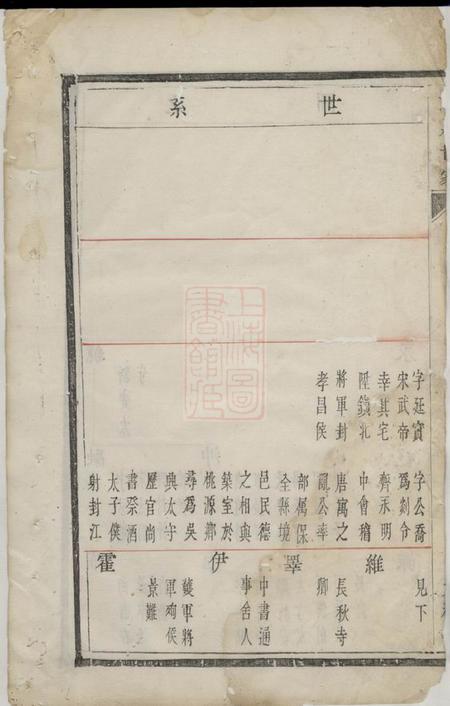 世系
字廷寳
宋武帝
幸其宅
陞鎮北
將軍封
孝昌侯
字公喬
爲剡令
齊永明
中會稽
唐寓之
亂公率
部属保
全縣境
邑民德
之相與
築室於
桃源鄉
尋爲吳
興太守
歷官尚
書祭酒
太子僕
射封江
見下
維
長秋寺
卿
睪
伊
中書通
事舍人
霍
䕶軍將
軍殉侯
景難
上海圖書館藏